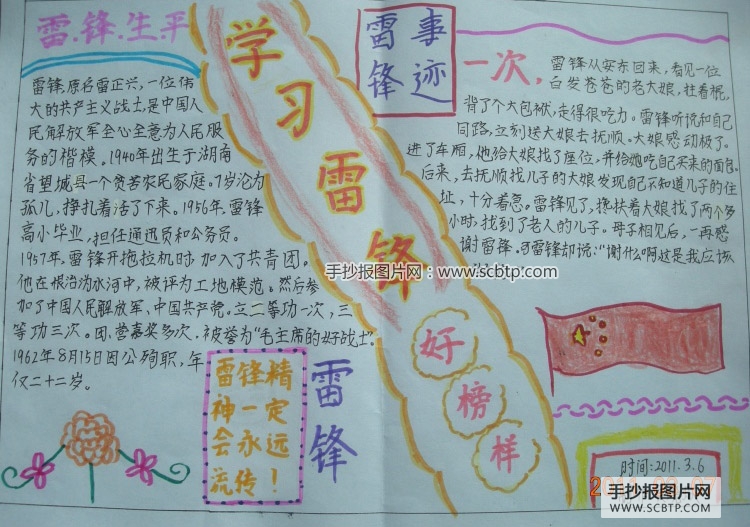 雷.锋.生.平
雷锋,原名雷正兴,一位伟
大的共产主义战士,是中国人
民解放军全心全意为人民服
务的楷模。1940年出生于湖南
省望城县一个贫苦农民家庭。7岁沦为
孤儿,挣扎着活了下来。1956年,雷锋
高小毕业,担任通迅员和公务员。
1957年,雷锋开拖拉机时加入了共青团。
他在根治沩水河中,被评为工地模范。然后参
加了中国人民解放军,中国共产党。立二等功一次,三
等功三次。团、营嘉奖多次,被誉为“毛主席的好战士”。
1962年8月15日因公殉职,年
仅二十二岁。
雷锋精
神一定
会永远
流传!
雷锋
学习雷锋
好榜样
雷锋
事迹
一次,雷锋从安东回来,看见一位
白发苍苍的老大娘,拄着棍,
背了个大包袱,走得很吃力。雷锋听说和自己
同路,立刻送大娘去抚顺。大娘感动极了。
进了车厢,他给大娘找了座位,并给她吃自己买来的面包。
后来,去抚顺找儿子的大娘发现自己不知道儿子的住
址,十分着急。雷锋见了,搀扶着大娘找了两个多
小时,找到了老人的儿子。母子相见后,一再感
谢雷锋。可雷锋却说:“谢什么啊这是我应该
手抄报图片网:www.scbtp.com
时间:2011.3.6
手抄报图片网
WWW.SCBTP.COM